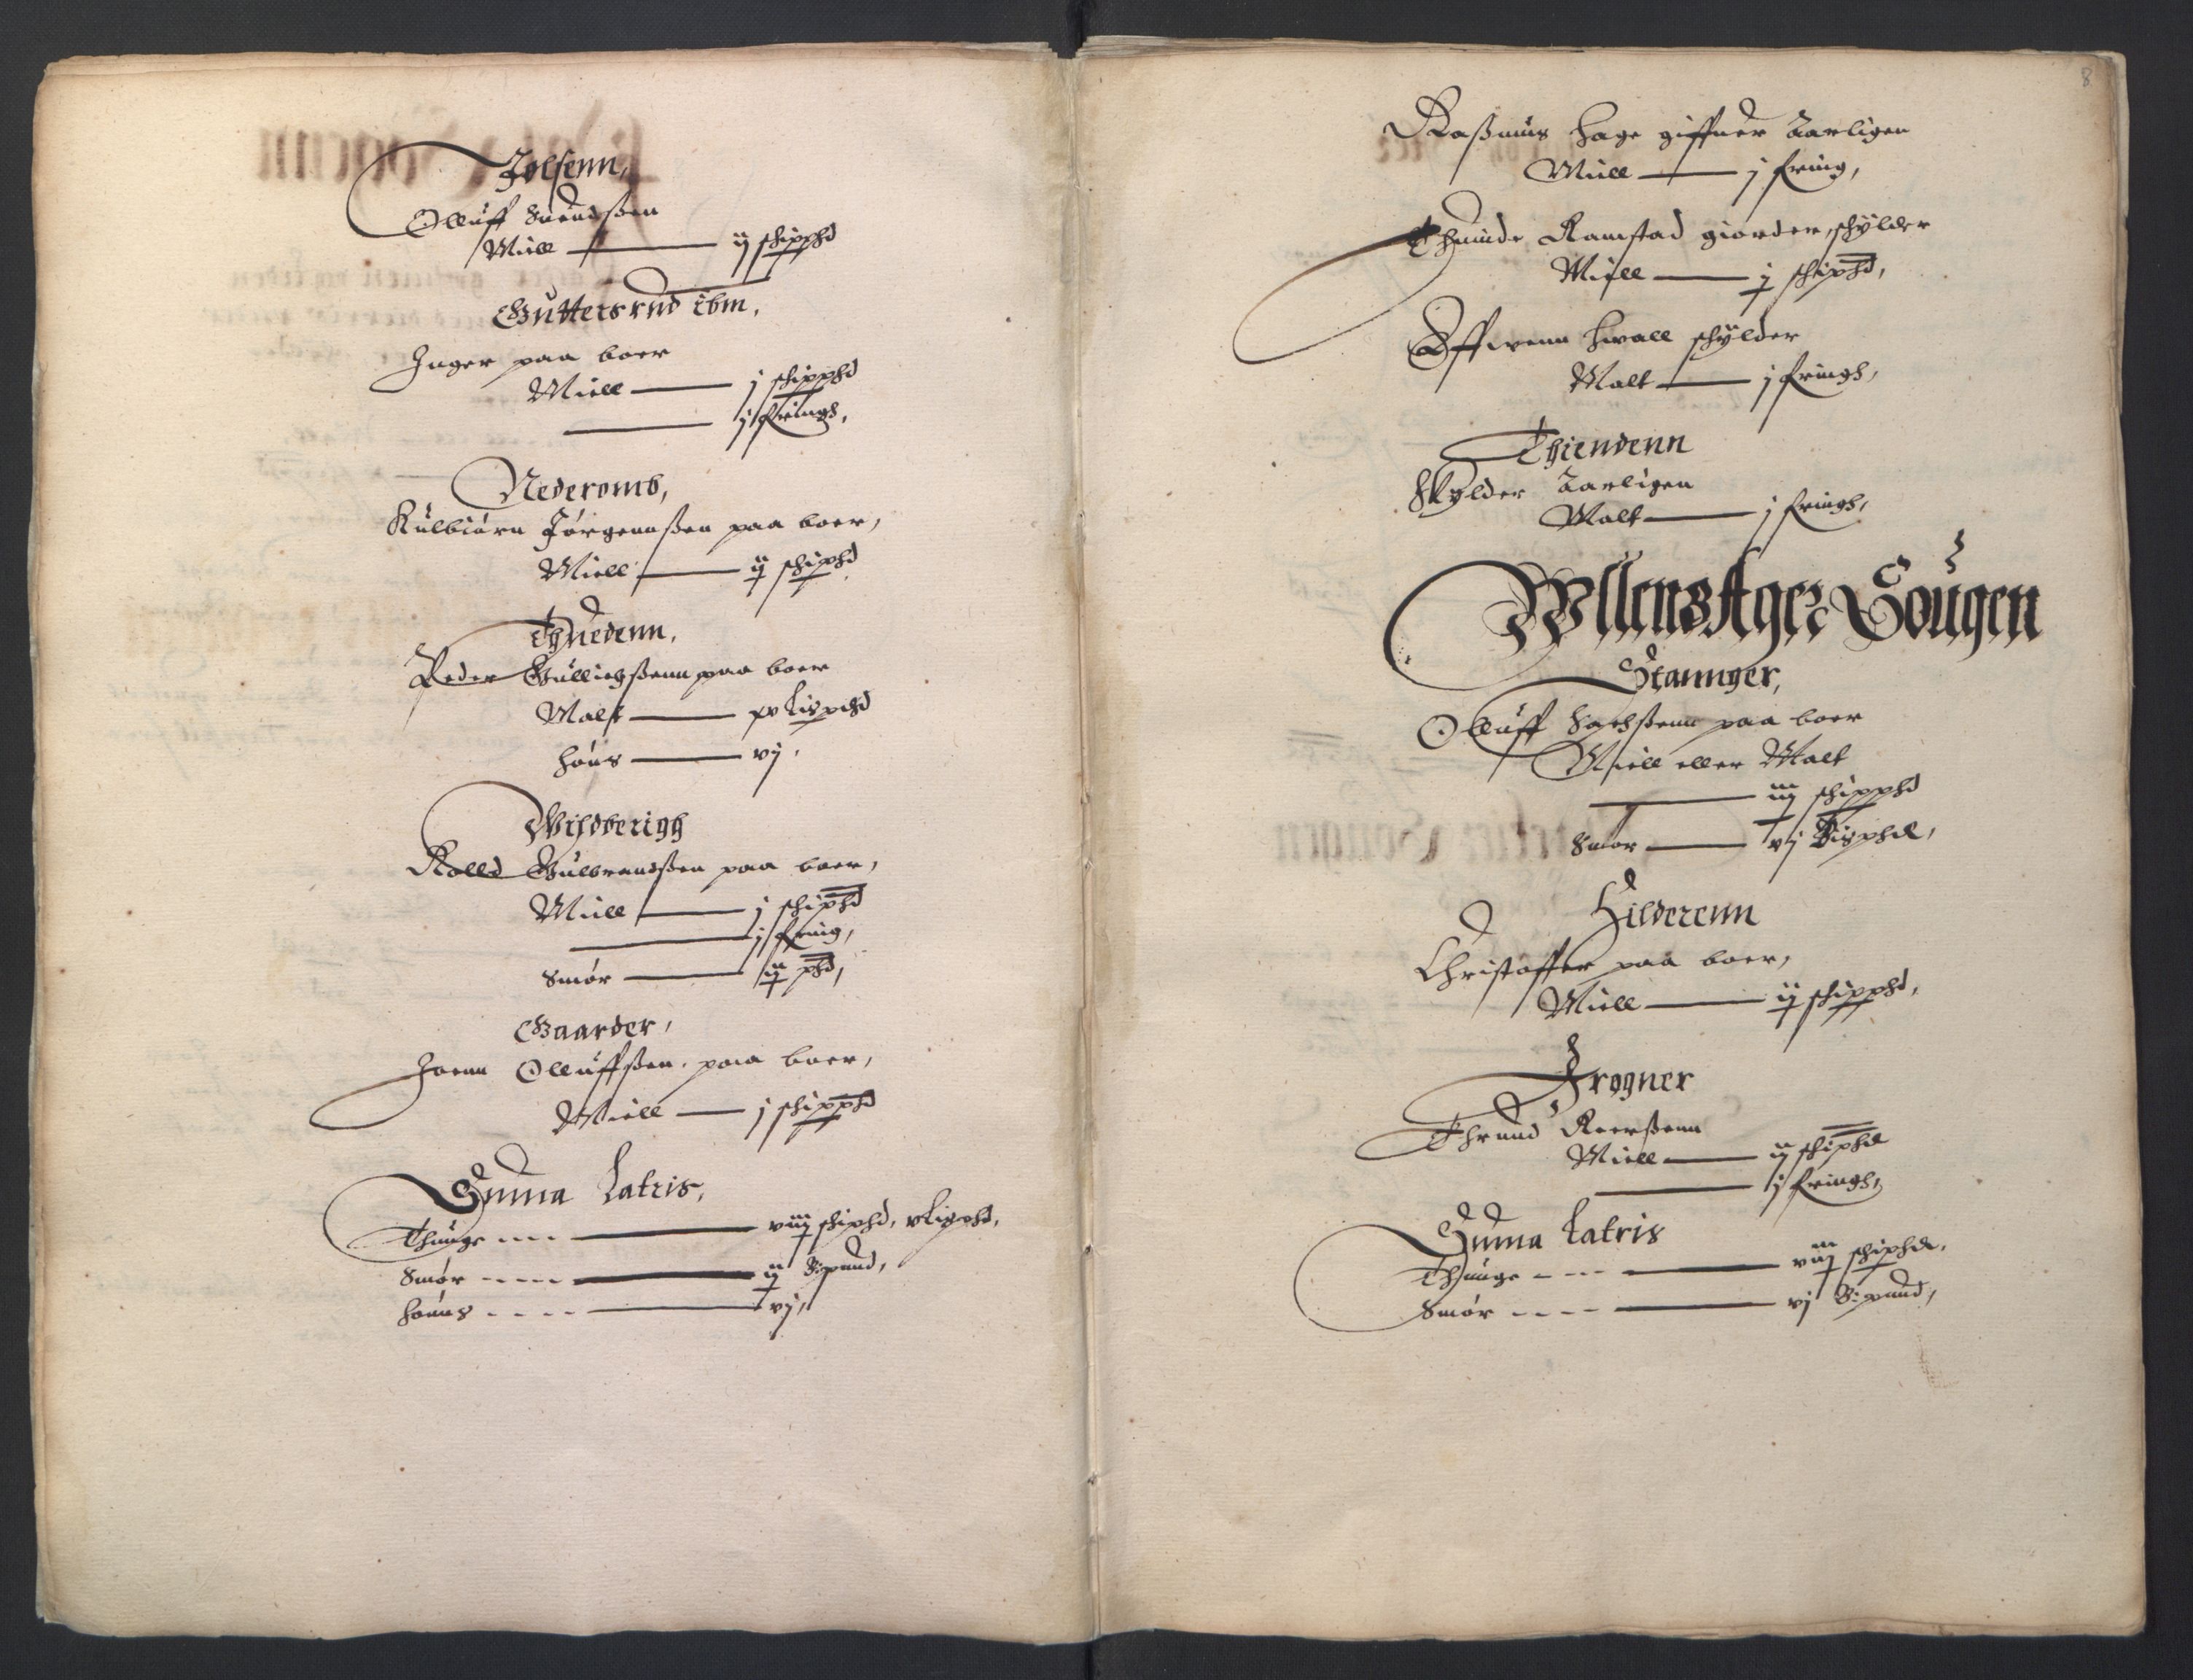 Jølsenn,
Olluff Suendssen
Miell — ij schippd
Guttersrud ibm,
Inger paa boer
Miell — j schippd
— j fring,
Nederomb,
Kulbiørn Jørgennssen paa boer,
Miell — ij schipd
Thuedenn,
Peder Gullichssenn paa boer
Malt — xv Lispd
Høns — vj.
Wildberigh
Rolld Gulbrandssen paa boer,
Miell — j schipd
— j fring,
Smør — iij pd,
Gaarder,
Joenn Olluffssen paa boer,
Miell — j schippd
Suma Latris,
Thunge — viij schipd, v Lispd,
Smør — iij Bpund,
Høns — vj,
8
Rassmus Hage giffuer Aarligen
Miell — j fring,
Thrunde Ramstad giorder, schylder
Miell — j schipd,
Effwenn Hwall schylder
Malt — j fring,
Thiendenn
Skylder Aarligen
Malt — j fring,
Wllensager Sougen
Stannger,
Olluff paa boer
Miell eller Malt
— iiij schippd
Smør — vj Bispd,
Hilderenn
Christoffer paa boer,
Miell — ij schippd,
Frogner
Thrund Reerssenn
Miell — ij schipd
— j fring,
Suma Latris
Thunge — viij schipd,
Smør — vj Bpund,